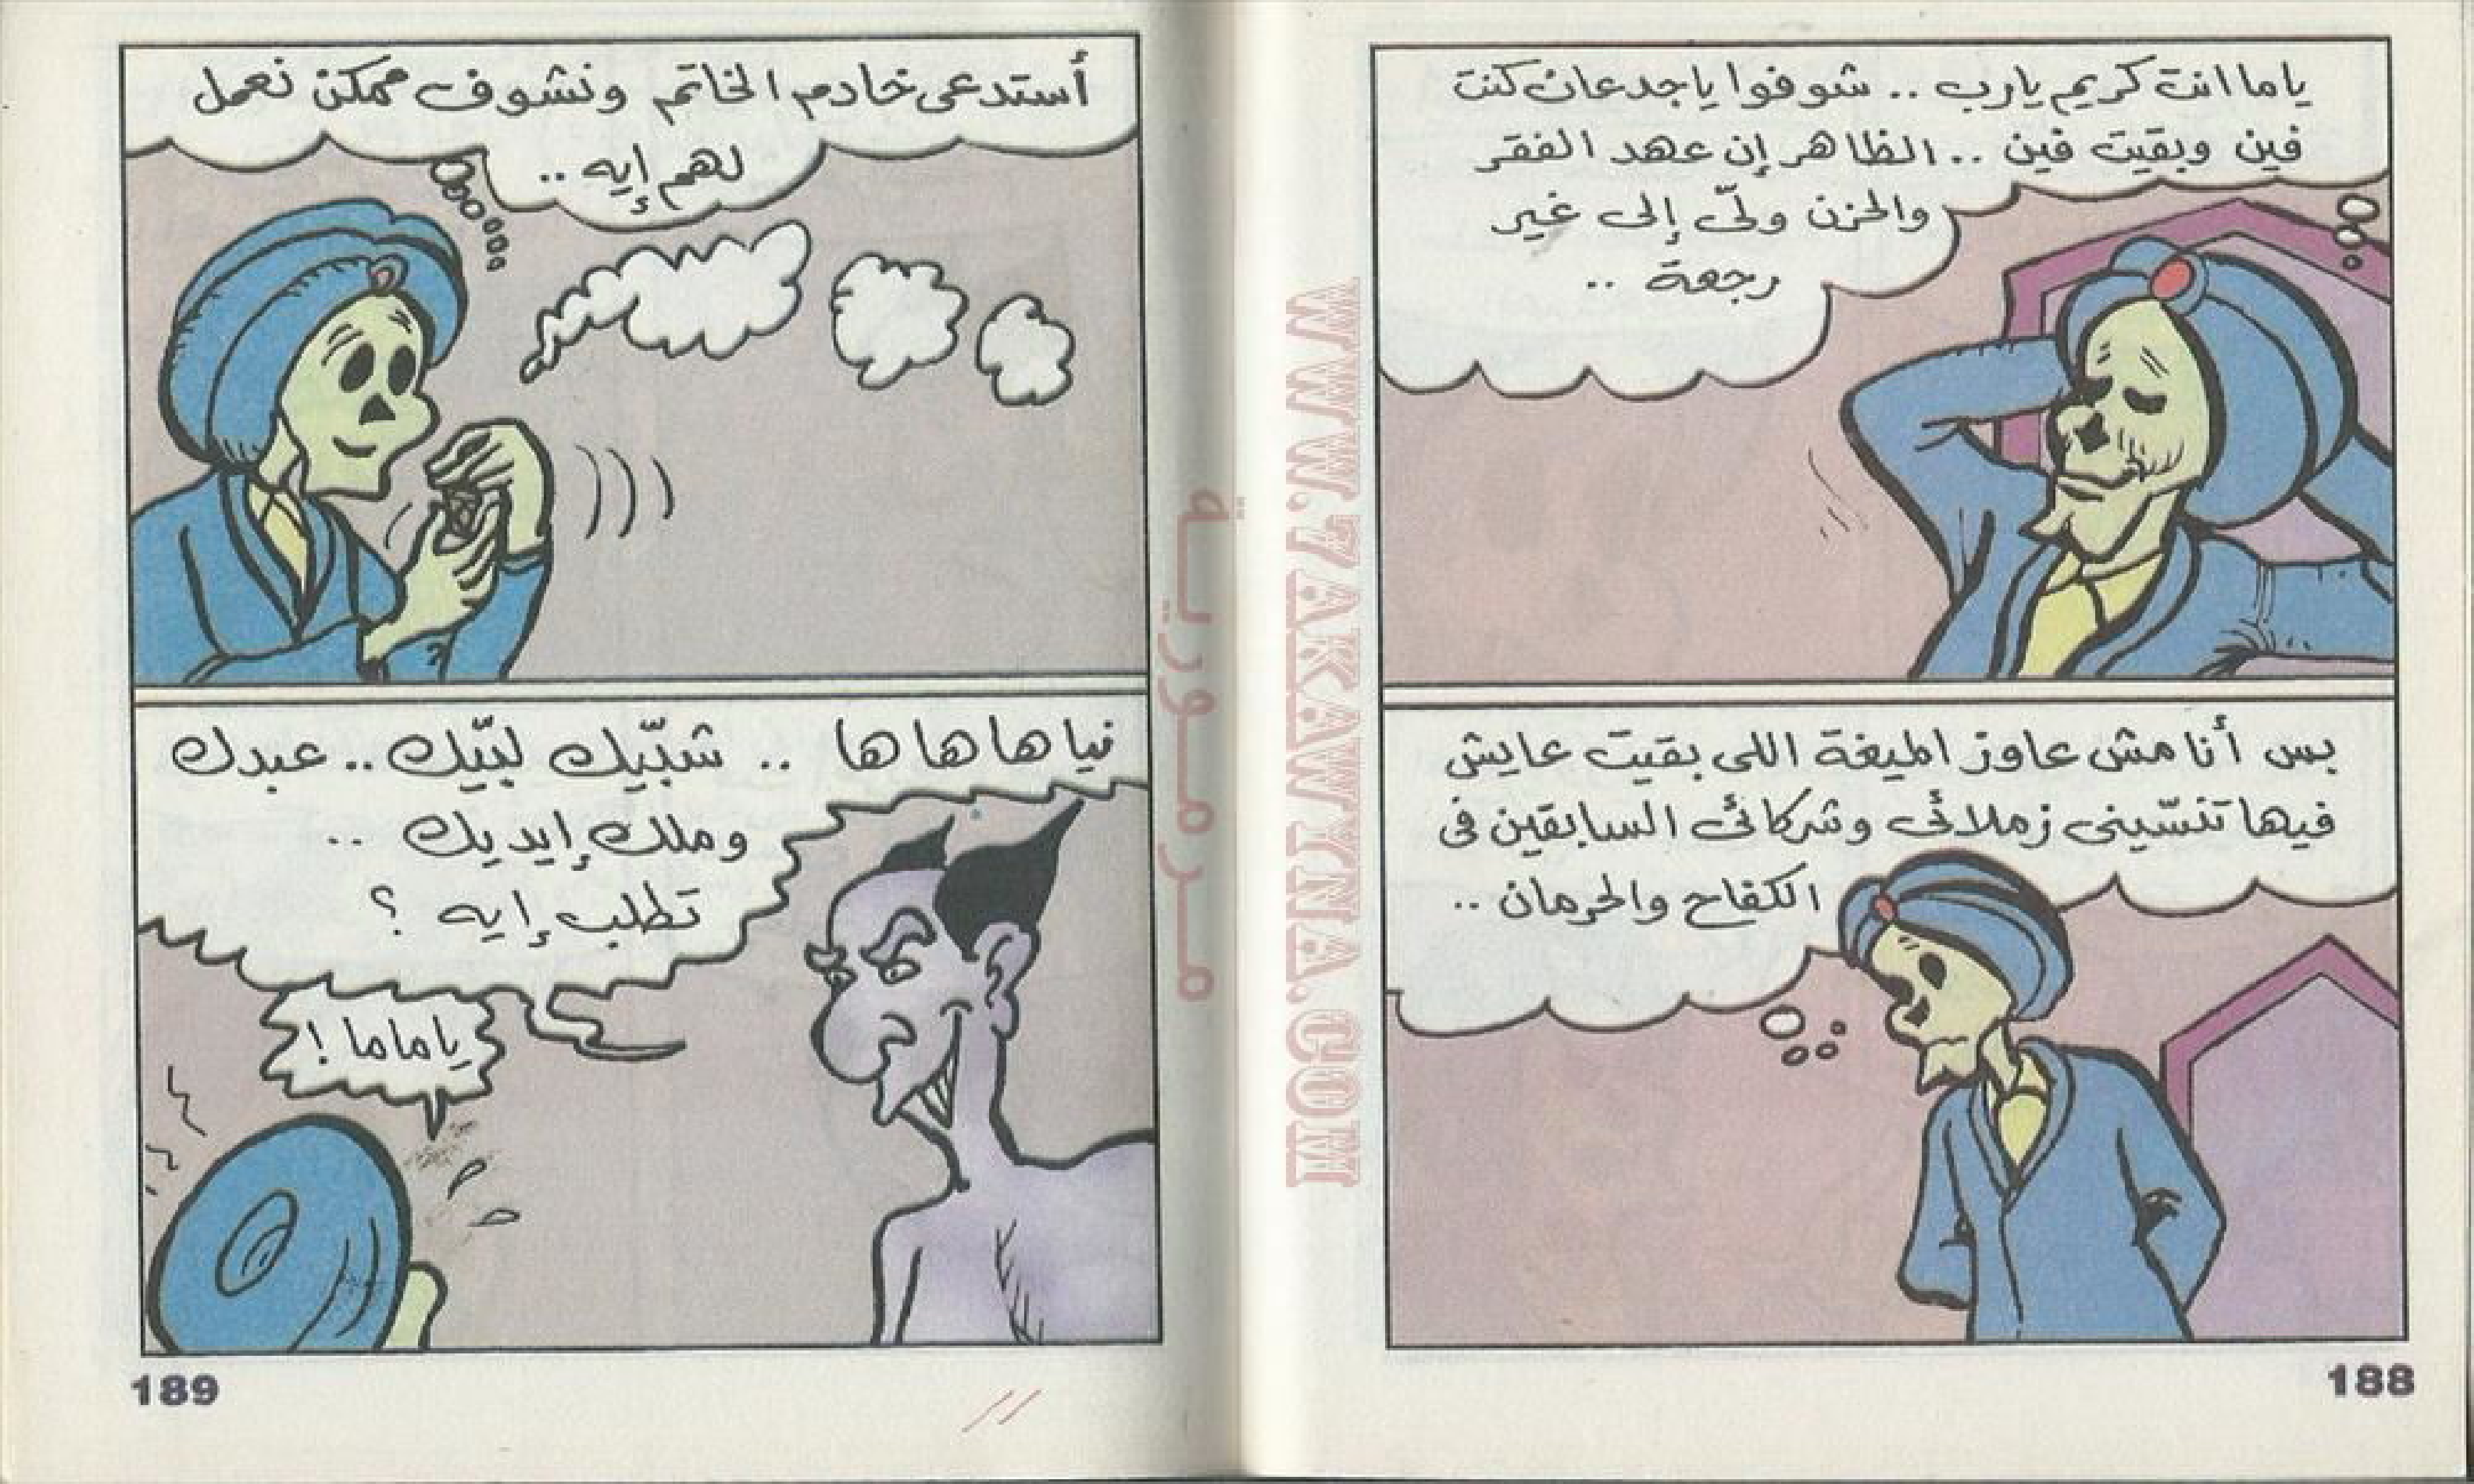 ياما انت كريم يارب .. شوفوا ياجدعان كنت
فين وبقيت فين .. الظاهر إن عهد الفقر
والحزن ولّى إلى غير
رجعة ..
بس أنا مش عاوز الميغة اللى بقيت عايش
فيها تنسّينى زملائى وشركائى السابقين فى
الكفاح والحرمان ..
188
أستدعى خادم الخاتم ونشوف ممكن نعمل
لهم إيه ..
نيا ها ها ها .. شبّيك لبّيك .. عبدك
وملك إيديك ..
تطلب إيه ؟
ياماما !
189
مرمورية
WWW.7AKAWYNA.COM